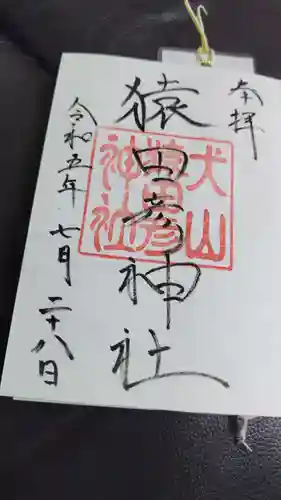 奉拝
猿田彦神社
犬山
猿田彦
神社
令和五年
七月
二十八日